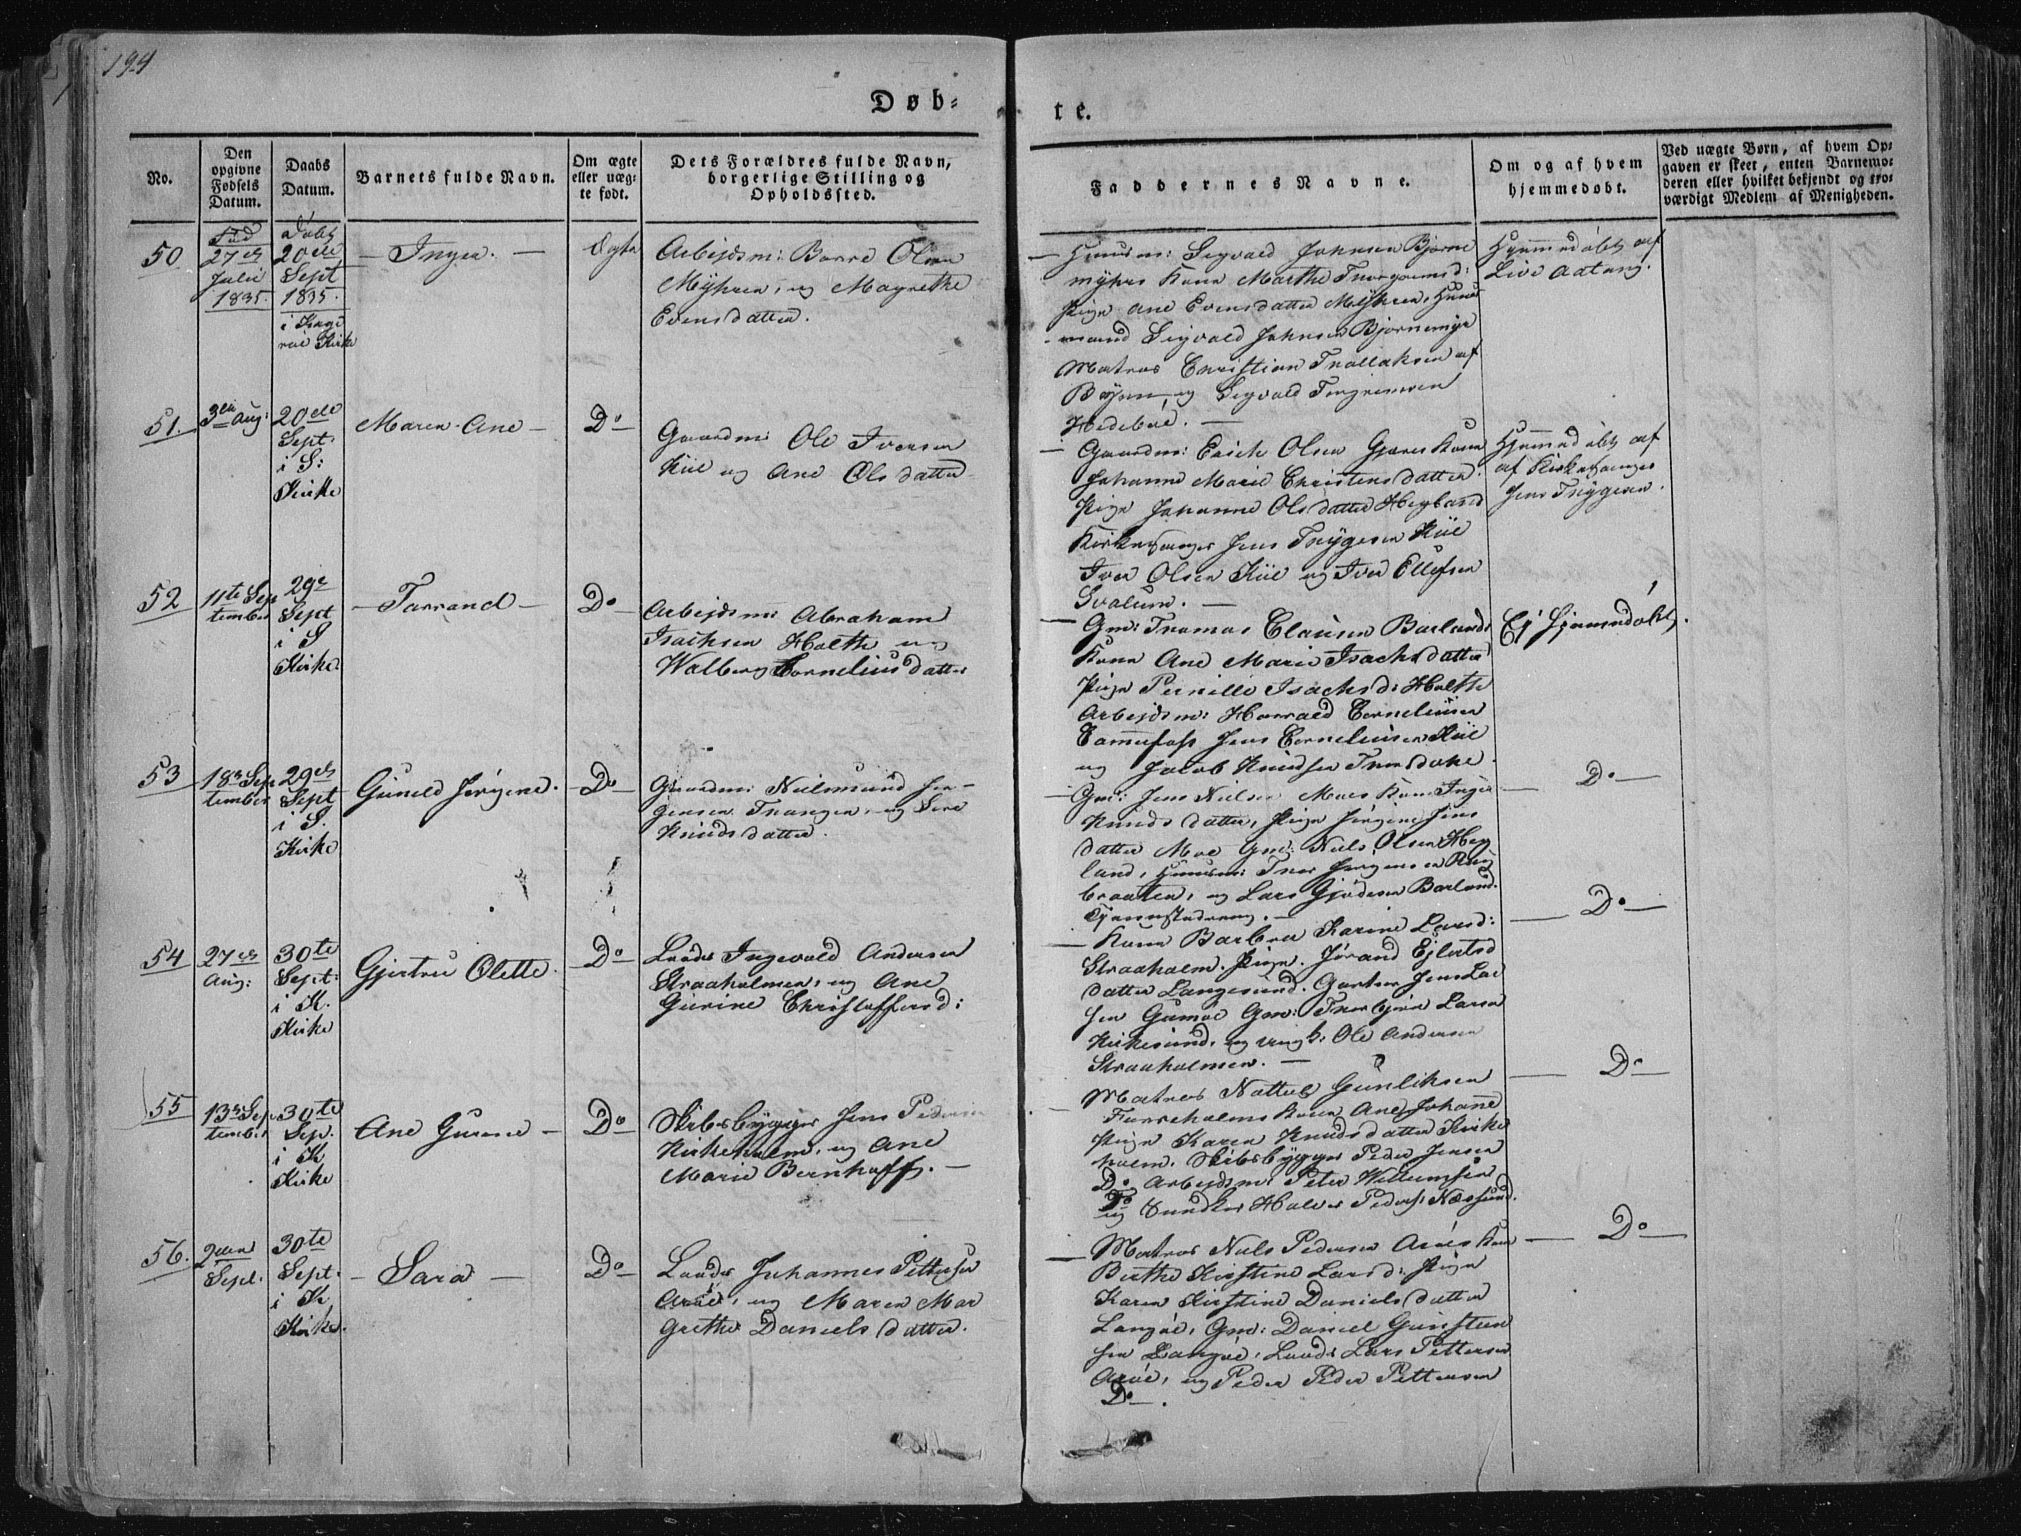 194
Døb-
te.
No.
Den opgivne Fødsels Datum.
Daabs Datum.
Barnets fulde Navn.
Om ægte eller uægte født.
Dets Forældres fulde Navn, borgerlige Stilling og Opholdssted.
Faddernes Navne.
Om og af hvem hjemmedøbt.
Ved uægte Børn, af hvem Opgaven er skeet, enten Barnemoderen eller hvilket bekjendt og troværdigt Medlem af Menigheden.
50
Fød
27de
Julii
1835.
Døbt
20de
Sept
1835.
Kirke
— Inger. —
Ægte
Arbejdsm: Borre Olsen
Myhren, og Magrethe
Evensdatter.
— Huusm: Sigvald Johnsen Bjørne
myhrs Kone Marthe
Pige Ane Evensdatter Myhren, Huus
mand Sigvald Johnsen Bjørnemyr
Matros Christian af
og Sigvald
Hjemmedøbt af
51.
3die Aug:
20de
Sept.
i S:
Kirke
Maren Ane —
Do —
Gaardm: Ole Iversen
Kiil og Ane Olsdatter
— Gaardm: Erich Olsen Kone
Johanne Marie Christensdatter
Pige Johanne Olsdatter Hegland
Kirkesanger Jens Trygesen Kiil
Iver Olsen Kiil og Iver Ellefsen
Hjemmedøbt af
af Kirkesanger
Jens Trygesen.
52
11te Sep
tember
29de
Sept
i S
Kirke.
— Tarrand —
Do —
Arbejdsm: Abraham
Isachsen Holthe og
Walberg Cornelius datter
— Gm: Thomas Clausen Barlands
Kone Ane Marie Isachsdatter
Pige Pernille Isachsd: Holthe
Arbejdsm: Harrald Corneliusen
Jens Corneliusen Kiil
og Jacob Knudsen
Ej Hjemmedøbt.
53
18de Sep
tember
29de
Sept
i S.
Kirke
Guneld Jørgine.
Do —
Gaardm: Nielmund Jør-
gensen Tvangen, og Sire
Knudsdatter.
— Gm: Jens Nielsen Moes Kone Inger
Knudsdatter, Pige Jørgine Jens
datter Moe Gm: Niels Olsen Heg
land, Huusm: Thor Jørgensen
braaten, og Lars Barland
— Do —
54
27de
Aug:
30te
Sept:
i K.
Kirke
Gjertru Olette.
Do —
Lods Ingevald Andersen
Straaholmen, og Ane
Gurine Christoffersd:
— Kone Barbra Karine Larsd:
Straaholm. Pige Jørand
datter Langesund. Jens Lar
sen Gumøe Gm: Thorbjørn Larsen
Kirkesund, og Ungk: Ole Andersen
Straaholmen. —
— Do —
55
13de Sep
tember
30te
Sep.
i K
Kirke
Ane Gurine —
Do —
Skibsbygger Jens Pedersen
Kirkeholm, og Ane
Marie Bernhoff. —
— Matros Gunliksen
Furreholmen Kone Ane Johanne
Pige Karen Knudsdatter Kirke
holm. Skibsbygger Peder Jensen
Do Arbejdsm: Peter Willumsen
Do
og Halvor Peders:
— Do —
56.
2den
Sept.
30te
Sept.
i K
Kirke.
— Sara —
Do —
Lods Johannes Pettersen
Arøe, og Maren Mar
grethe Danielsdatter.
— Matros Niels Pedersen Arøes Kone
Birthe Kirstine Larsd: Pige
Karen Kirstine Danielsdatter
Langøe, Gm: Daniel Gunsteen
sen Langøe, Lods Lars Pettersen
Arøe, og Peder Peder Pettersen
Do —.
— Do —